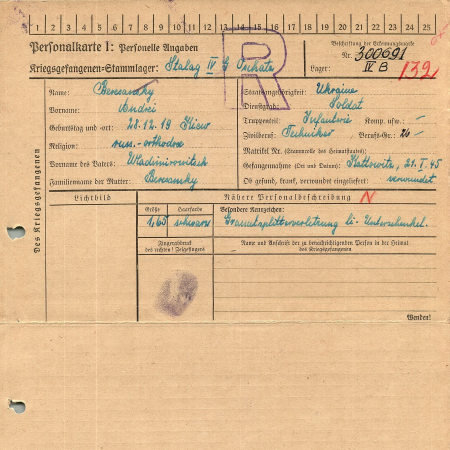 1 2 3 4 5 6 7 8 9 10 11 12 13 14 15 16 17 18 19 20 21 22 23 24 25
Personalkarte I: Personelle Angaben
Kriegsgefangenen-Stammlager: Stalag IV G Oschatz
R
Beschriftung der Erkennungsmarke
Nr. 300691
Lager: IV B 132
Des Kriegsgefangenen
Name: Beresansky
Vorname: Andrei
Geburtstag und -ort: 28.12.19 Kiew
Religion: russ.-orthodox
Vorname des Vaters: Wladimirowitsch
Familienname der Mutter: Beresansky
Staatsangehörigkeit: Ukraine
Dienstgrad: Soldat
Truppenteil: Infanterie Komp. usw.: —
Zivilberuf: Techniker Berufs-Gr.: 26 —
Matrikel Nr. (Stammrolle des Heimatstaates): —
Gefangennahme (Ort und Datum): Kattowitz, 21.I.45
Ob gesund, krank, verwundet eingeliefert: verwundet
Lichtbild
Nähere Personalbeschreibung N
Größe
Haarfarbe
Besondere Kennzeichen:
1,65 schwarz Granatsplitterverletzung li. Unterschenkel.
Fingerabdruck
des rechten! Zeigefingers
Name und Anschrift der zu benachrichtigenden Person in der Heimat
des Kriegsgefangenen
Wenden!